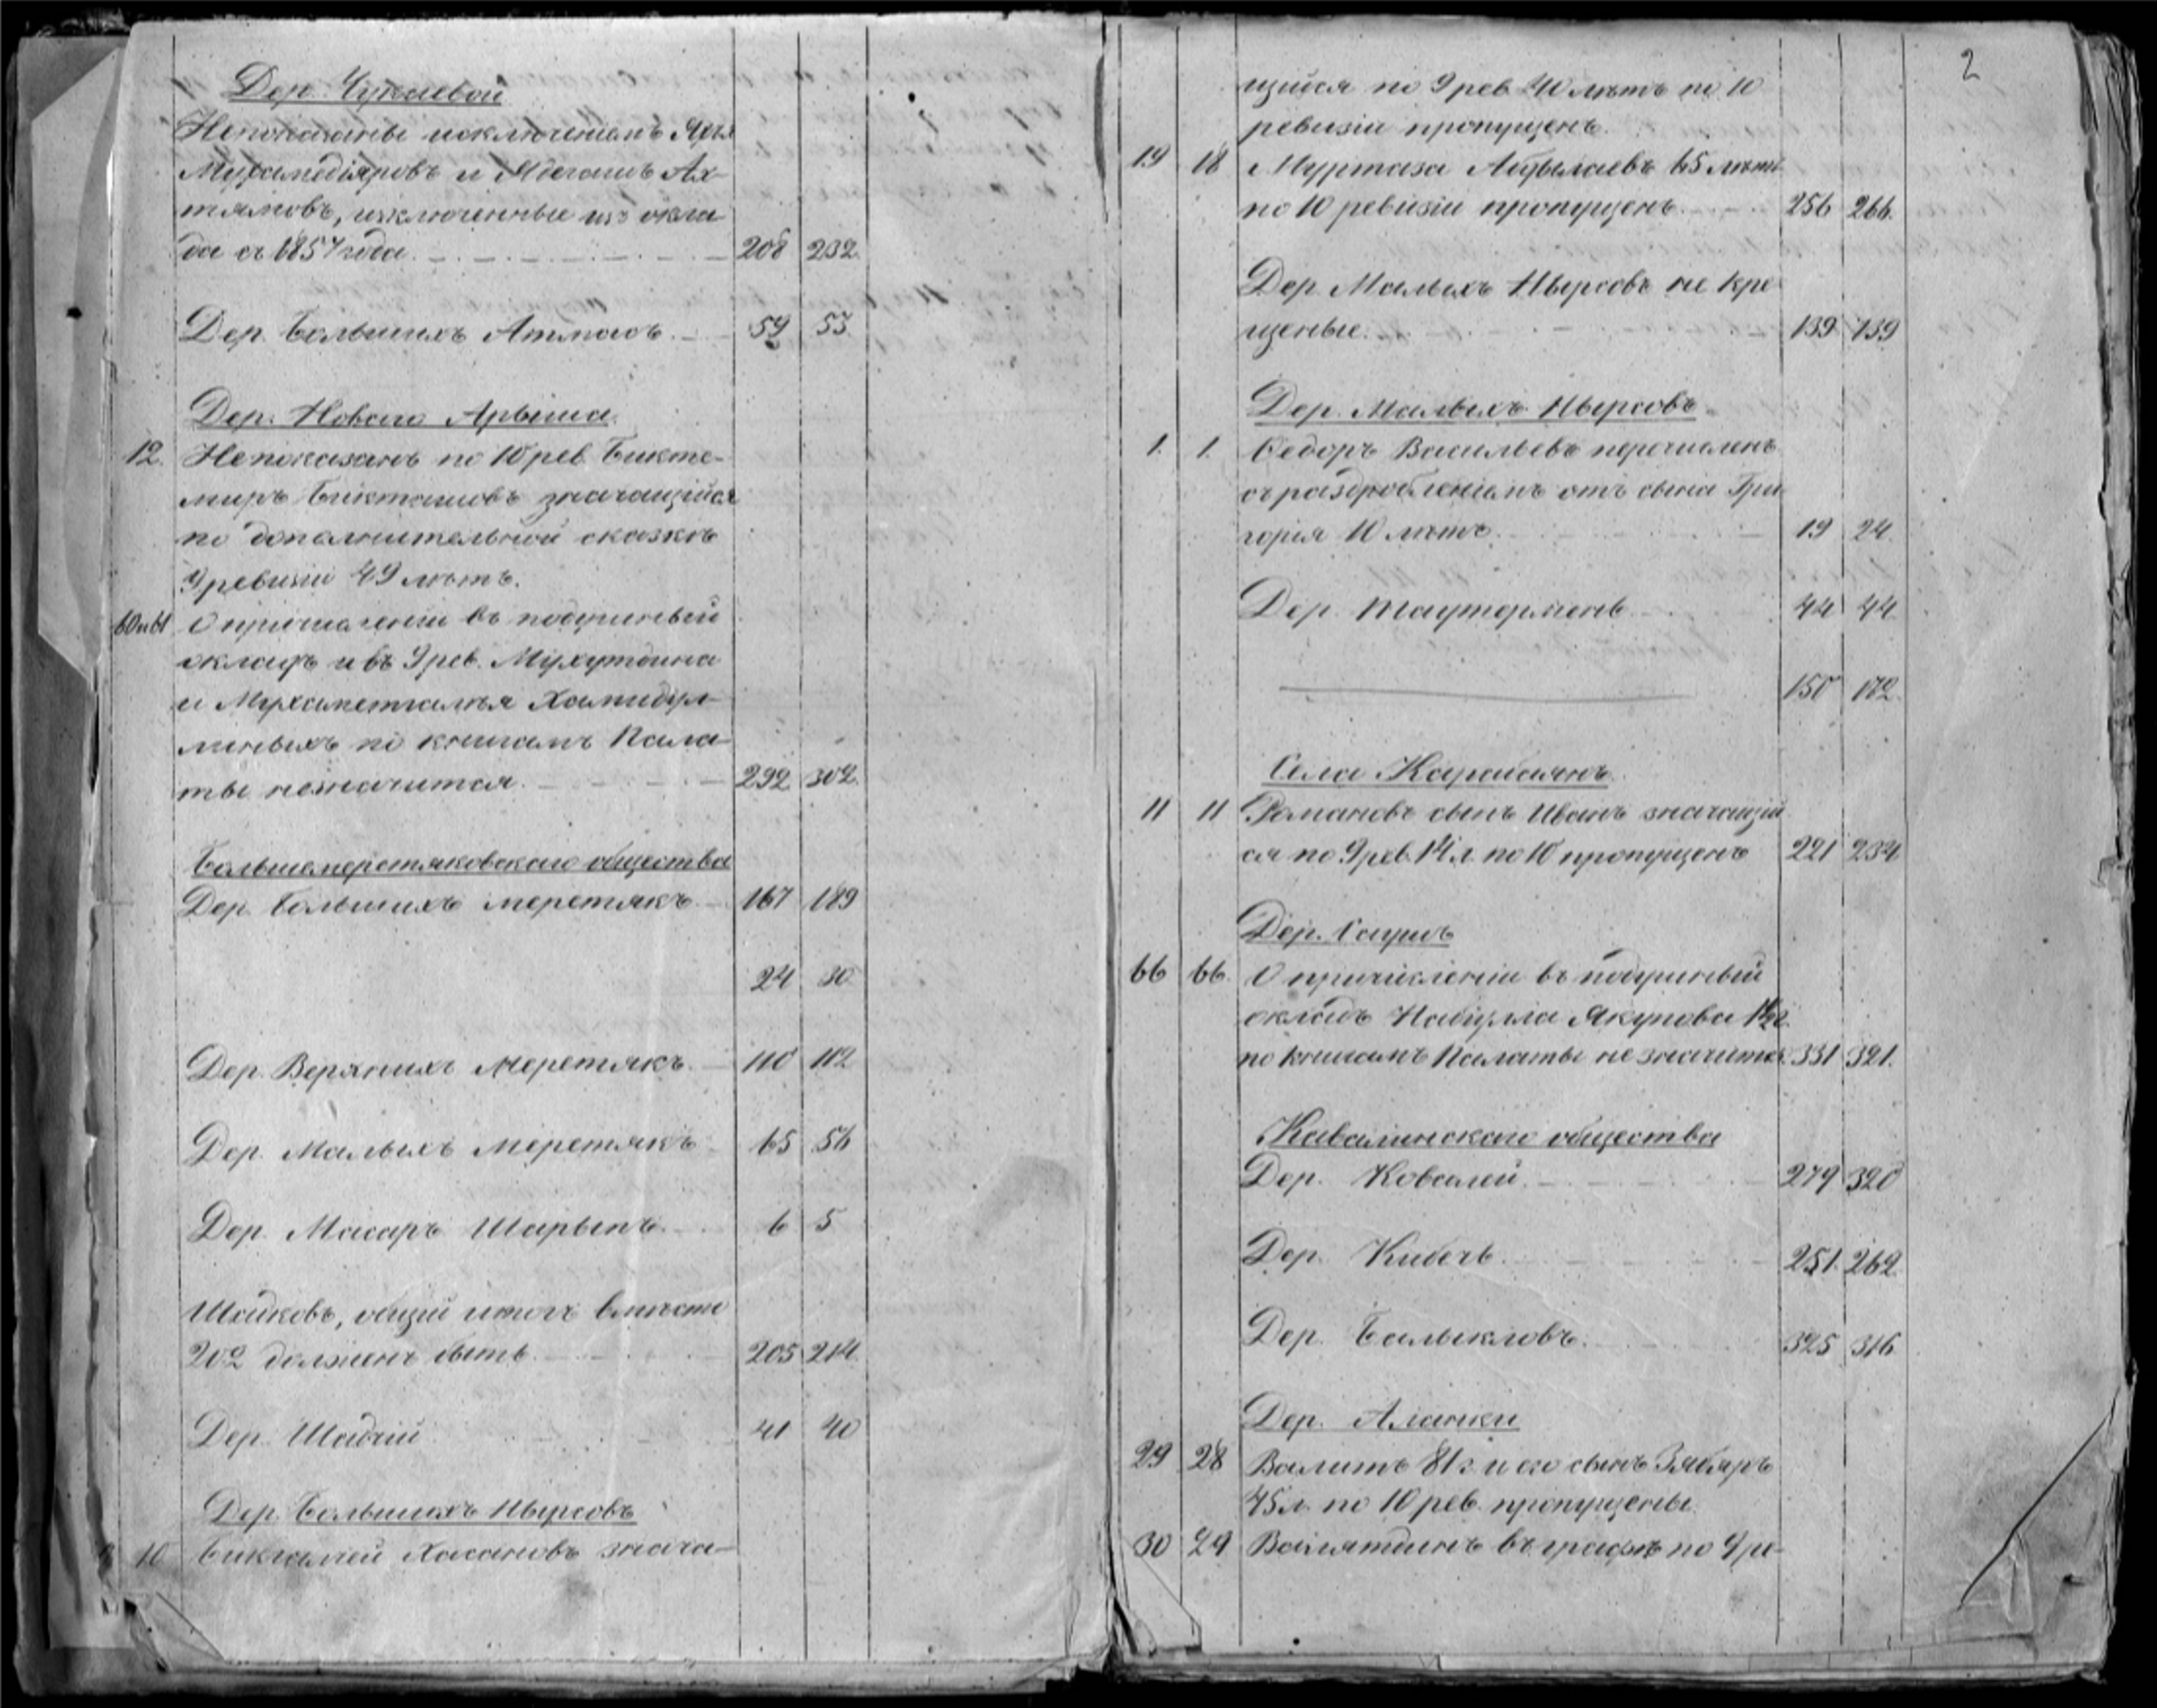 Дер. Чукаевой
Непоказаны исключениемъ
Мухамедіяровъ и Ах-
тямовъ, исключенные изъ окла-
да съ 1857 года. 208 232.
Дер. Большихъ Атмасъ. 59 53.
Дер. Новаго Арыша.
12. Непоказанъ по 10 рев. Бикте-
миръ Бикташовъ значащійся
по дополнительной сказкѣ
9 ревизіи 49 лѣтъ.
60 и 61 О причисленіи въ подушный
окладъ и въ 9 рев. Мухутдина
и Мухаметгалѣя Хамидул-
линыхъ по книгамъ Пала-
ты незначится. 292 302.
Большемеретяковскаго общества
Дер. Большихъ меретякъ. 167 189
24 30
Дер. Верхнихъ Меретякъ. 110 112
Дер. Малыхъ Меретякъ 65 56
Дер. Масаръ Шарыпъ. 6 5
Шойковъ, общій итогъ вмѣсто
202 долженъ быть. 205 214.
Дер. Шадчій 41 40
Дер. Большихъ Нырсовъ
9 10 Бикгалѣй Хасановъ знача-
2
щійся по 9 рев. 40 лѣтъ по 10
ревизіи пропущенъ.
19 18 Муртаза Абдылаевъ 65 лѣтъ
по 10 ревизіи пропущенъ. 256 266.
Дер. Малыхъ Нырсовъ не кре-
щеные. 139 139
Дер. Малыхъ Нырсовъ.
1. 1. Ѳедоръ Васильевъ перечисленъ
съ раздробленіемъ отъ сына Гри-
горія 10 лѣтъ. 19 24.
Дер. Таутермень. 44 44.
150 172.
Села Карабаянъ.
11 11 Романовъ сынъ Иванъ значащій-
ся по 9 рев. 14 л. по 10 пропущенъ 221 234
Дер. Саушъ
66 66. О причисленіи въ подушный
окладъ Набіулла Якупова
по книгамъ Палаты не значится 331 321.
Кавалинскаго общества
Дер. Ковалей. 279 320
Дер. Кибечь. 251. 262.
Дер. Балыкловъ. 325 316
Дер. Аланки
29 28 Валитъ 81 г. и его сынъ Зябаръ
45 л. по 10 рев. пропущены.
30 29 Валятдинъ въ графѣ по 9 ре-